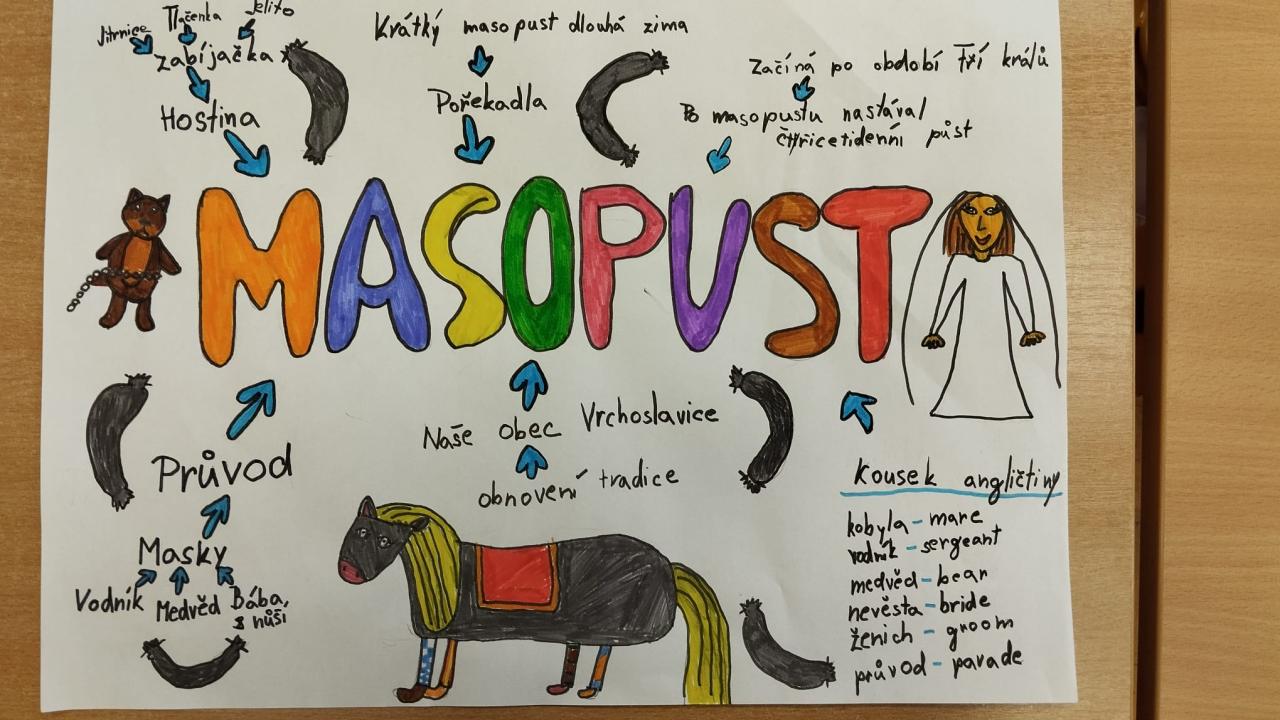 Jitrnice
Tlačenka
Jelito
Zabíjačka
Hostina
Krátký masopust dlouhá zima
Pořekadla
Začíná po období Tří králů
Po masopustu nastával
čtyřicetidenní půst
MASOPUST
Průvod
Masky
Vodník
Medvěd
Bába
s nůší
Naše obec Vrchoslavice
obnovení tradice
Kousek angličtiny
kobyla - mare
vodník - sergeant
medvěd - bear
nevěsta - bride
ženich - groom
průvod - parade